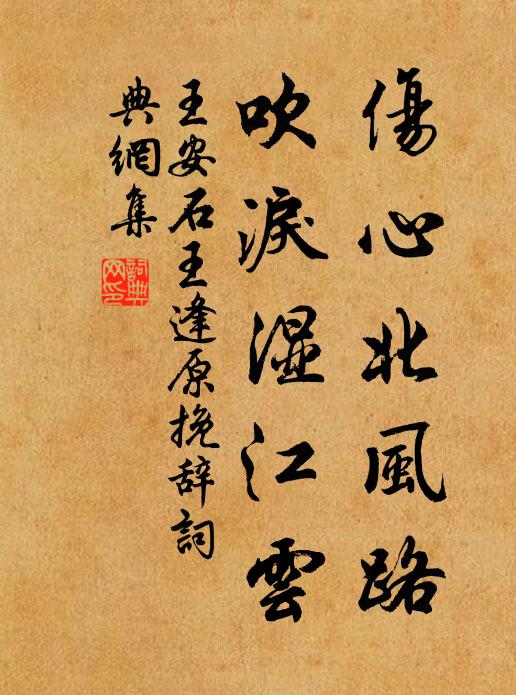 傷心北風路
吹淚湿江雲
王安石王逢原挽辞詞
典網集
詞典網印